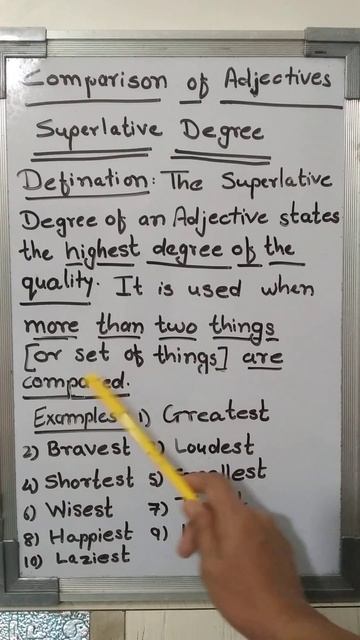 Comparison of Adjectives
Superlative Degree
Defination: The Superlative
Degree of an Adjective states
the highest degree of the
quality. It is used when
more than two things
[or set of things] are
compared.
Examples 1) Greatest
2) Bravest Loudest
4) Shortest 5)
6) Wisest 7)
8) Happiest 9)
10) Laziest